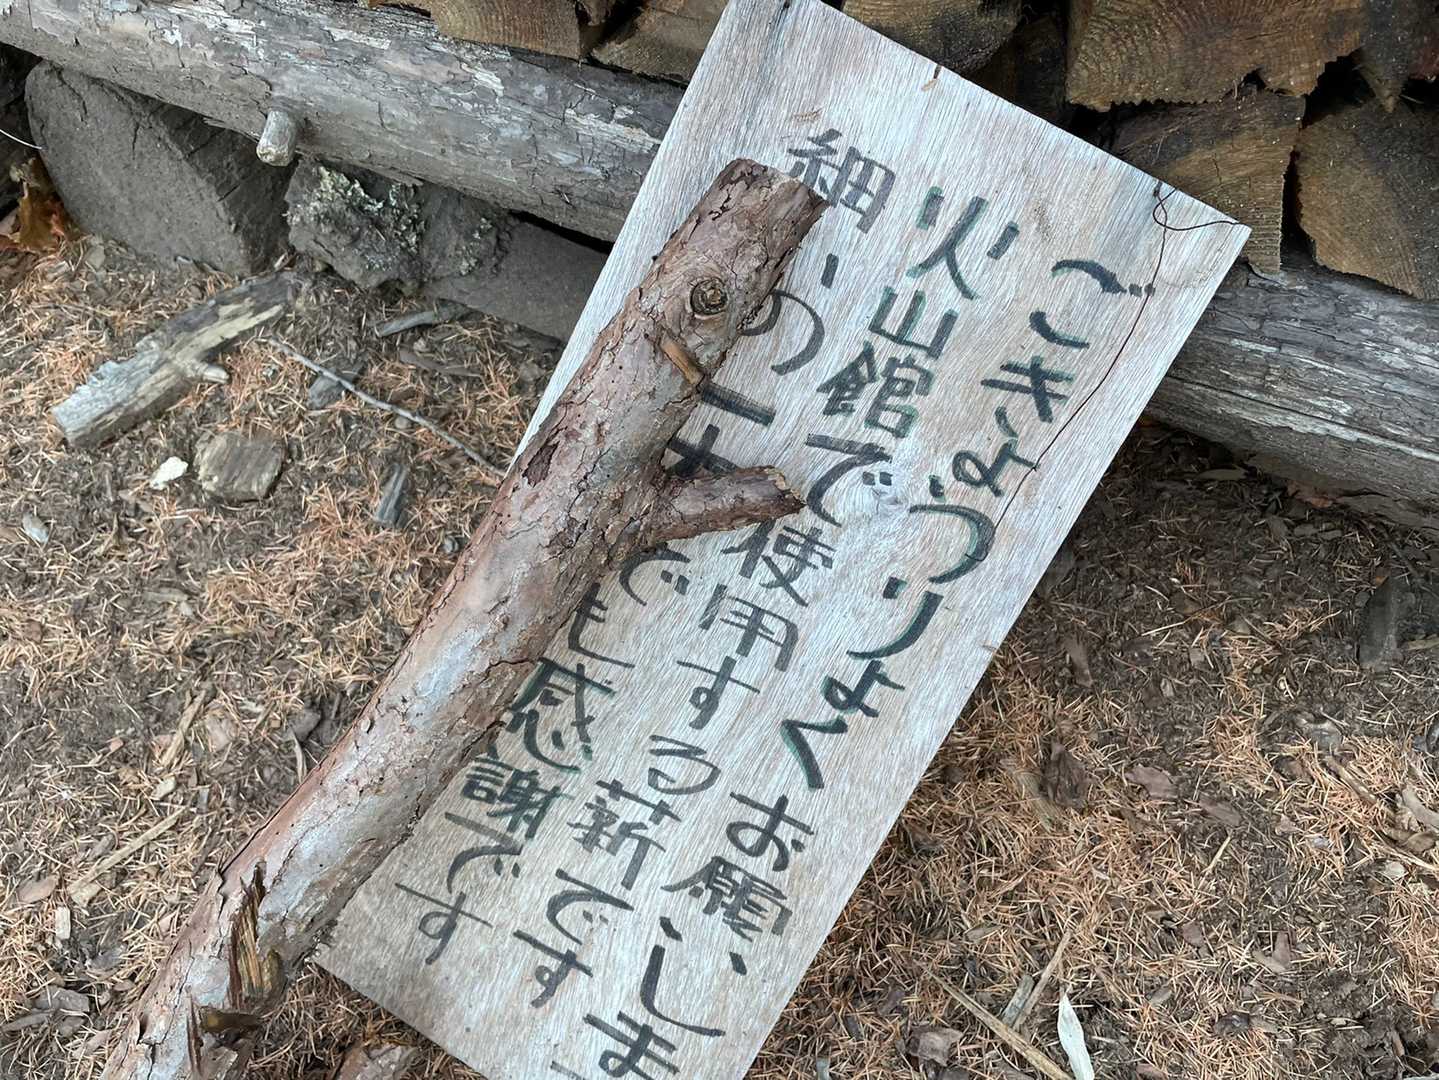 ごきょうりょくお願いしま
火山館で使用する薪です
細いの一本でも感謝です